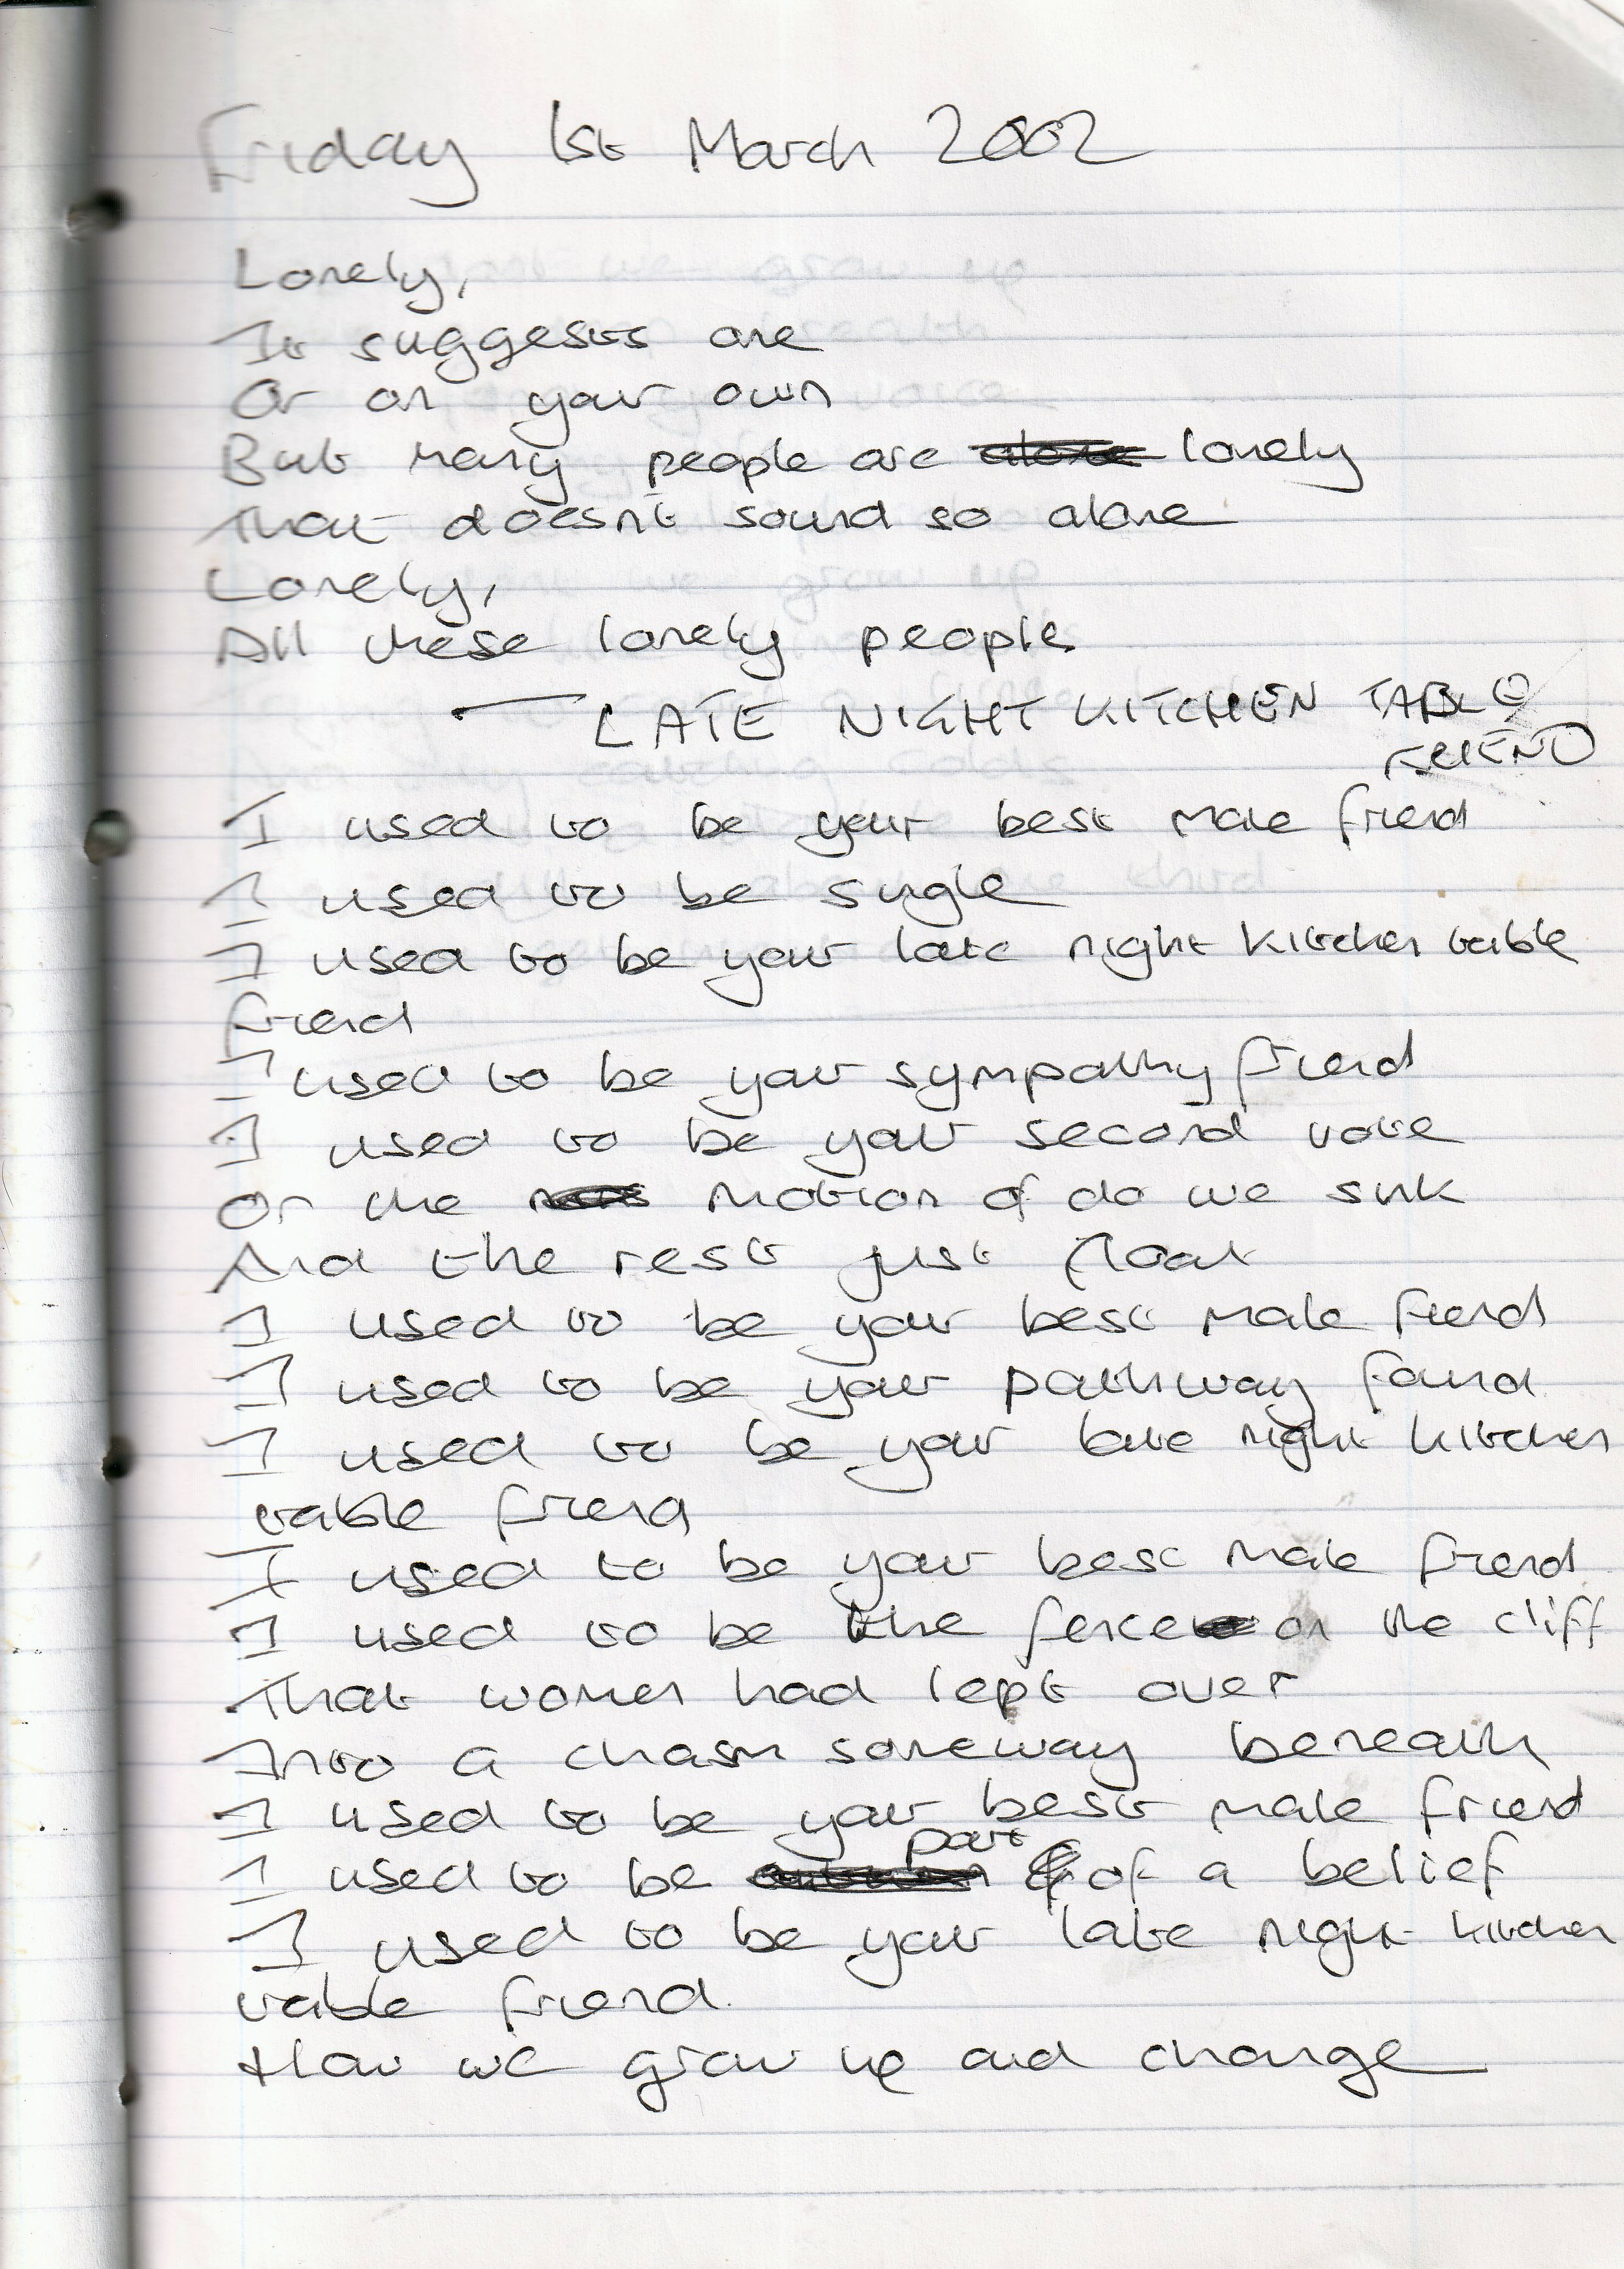 Friday 1st March 2002
Lonely,
It suggests one
Or on your own
But many people are alone lonely
That doesn't sound so alone
Lonely,
All these lonely people
— LATE NIGHT KITCHEN TABLE
FRIEND
I used to be your best male friend
I used to be single
I used to be your late night kitchen table
friend
I used to be your sympathy friend
I used to be your second vote
On the motion of do we sink
And the rest just float
I used to be your best male friend
I used to be your pathway found
I used to be your late night kitchen
table friend
I used to be your best male friend
I used to be the fence on the cliff
That women had lept over
Into a chasm someway beneath
I used to be your best male friend
I used to be part of a belief
I used to be your late night kitchen
table friend.
How we grow up and change